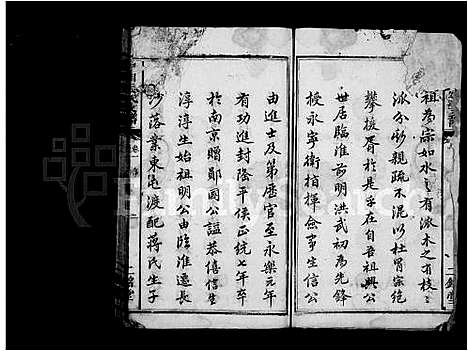 祖為宗如水之有派木之有枝
派分則親疏不混以杜冒宗絕
攀援胥於是乎在自吾祖興公
世居臨淮前明洪武初為先鋒
授永寧衛指揮僉事生信公
由進士及第歷官至永樂元年
有功進封隆平侯正統七年卒
於南京贈鄖國公謚恭僖信生
淳淳生始祖明公由臨淮遷長
沙落業東屯渡配蔣氏生子
二銘堂
二銘堂
FamilySearch